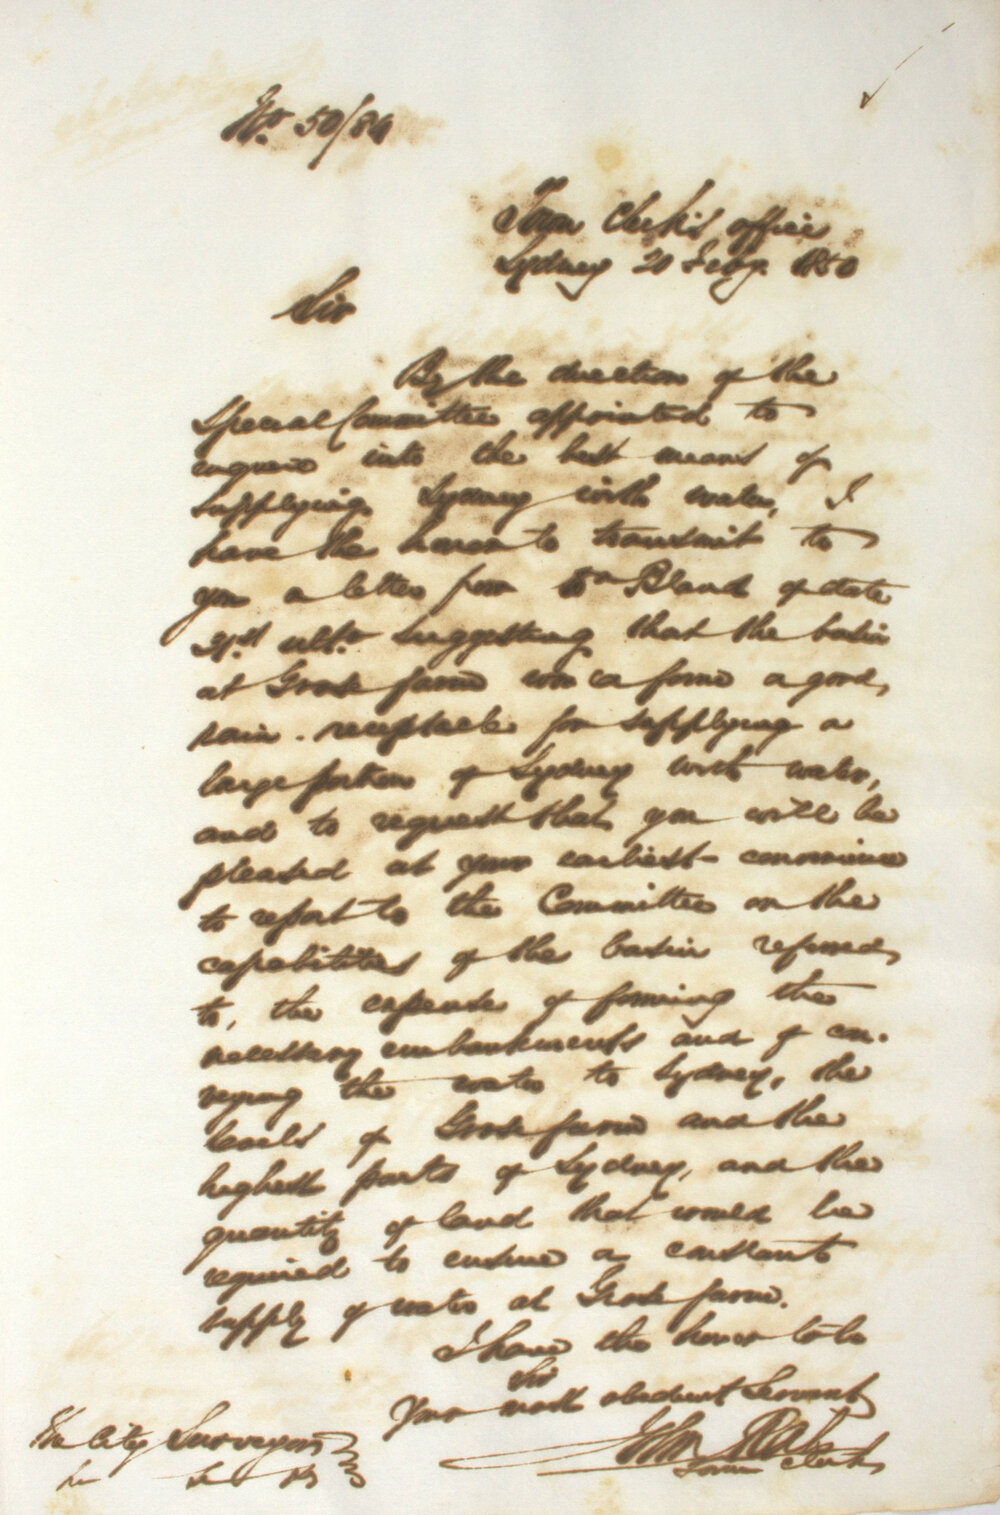 No. 50/84
Town Clerk's office
Sydney 20 Feby. 1850
Sir
By the direction of the
Special Committee appointed to
enquire into the best means of
supplying Sydney with water, I
have the honor to transmit to
you a letter from Dr Bland of date
31st ulto. suggesting that the basin
at Grose farm would form a good
main receptacle for supplying a
large portion of Sydney with water,
and to request that you will be
pleased at your earliest convenience
to report to the Committee on the
capabilities of the basin referred
to, the expense of forming the
necessary embankments and of con-
veying the water to Sydney, the
levels of Grose farm and the
highest parts of Sydney, and the
quantity of land that would be
required to ensure a constant
supply of water at Grose farm.
I have the honor to be
Sir
Your most obedient Servant
John
Town Clerk
The City Surveyor